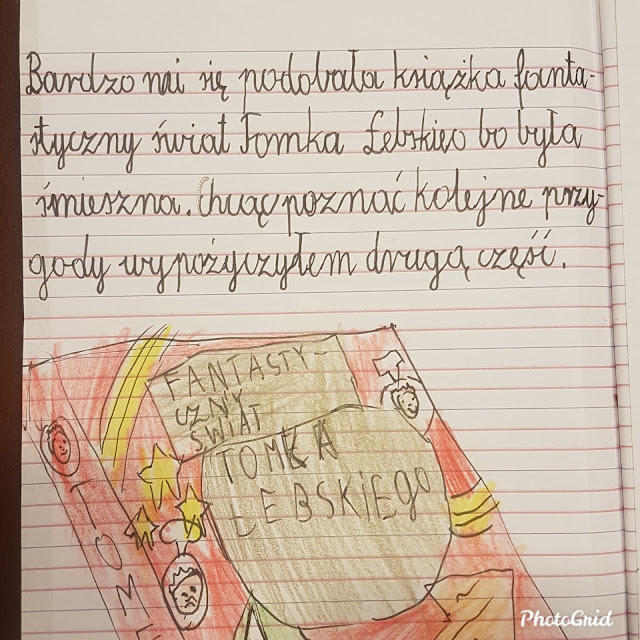 Bardzo mi się podobała książka fanta-
styczny świat Tomka Łebskieo bo była
śmieszna. Chcąc poznać kolejne przy-
gody wypożyczyłem drugą część.
FANTASTY-
CZNY
ŚWIAT
TOMKA
ŁEBSKIEgO
TOME
PHOTOGRID